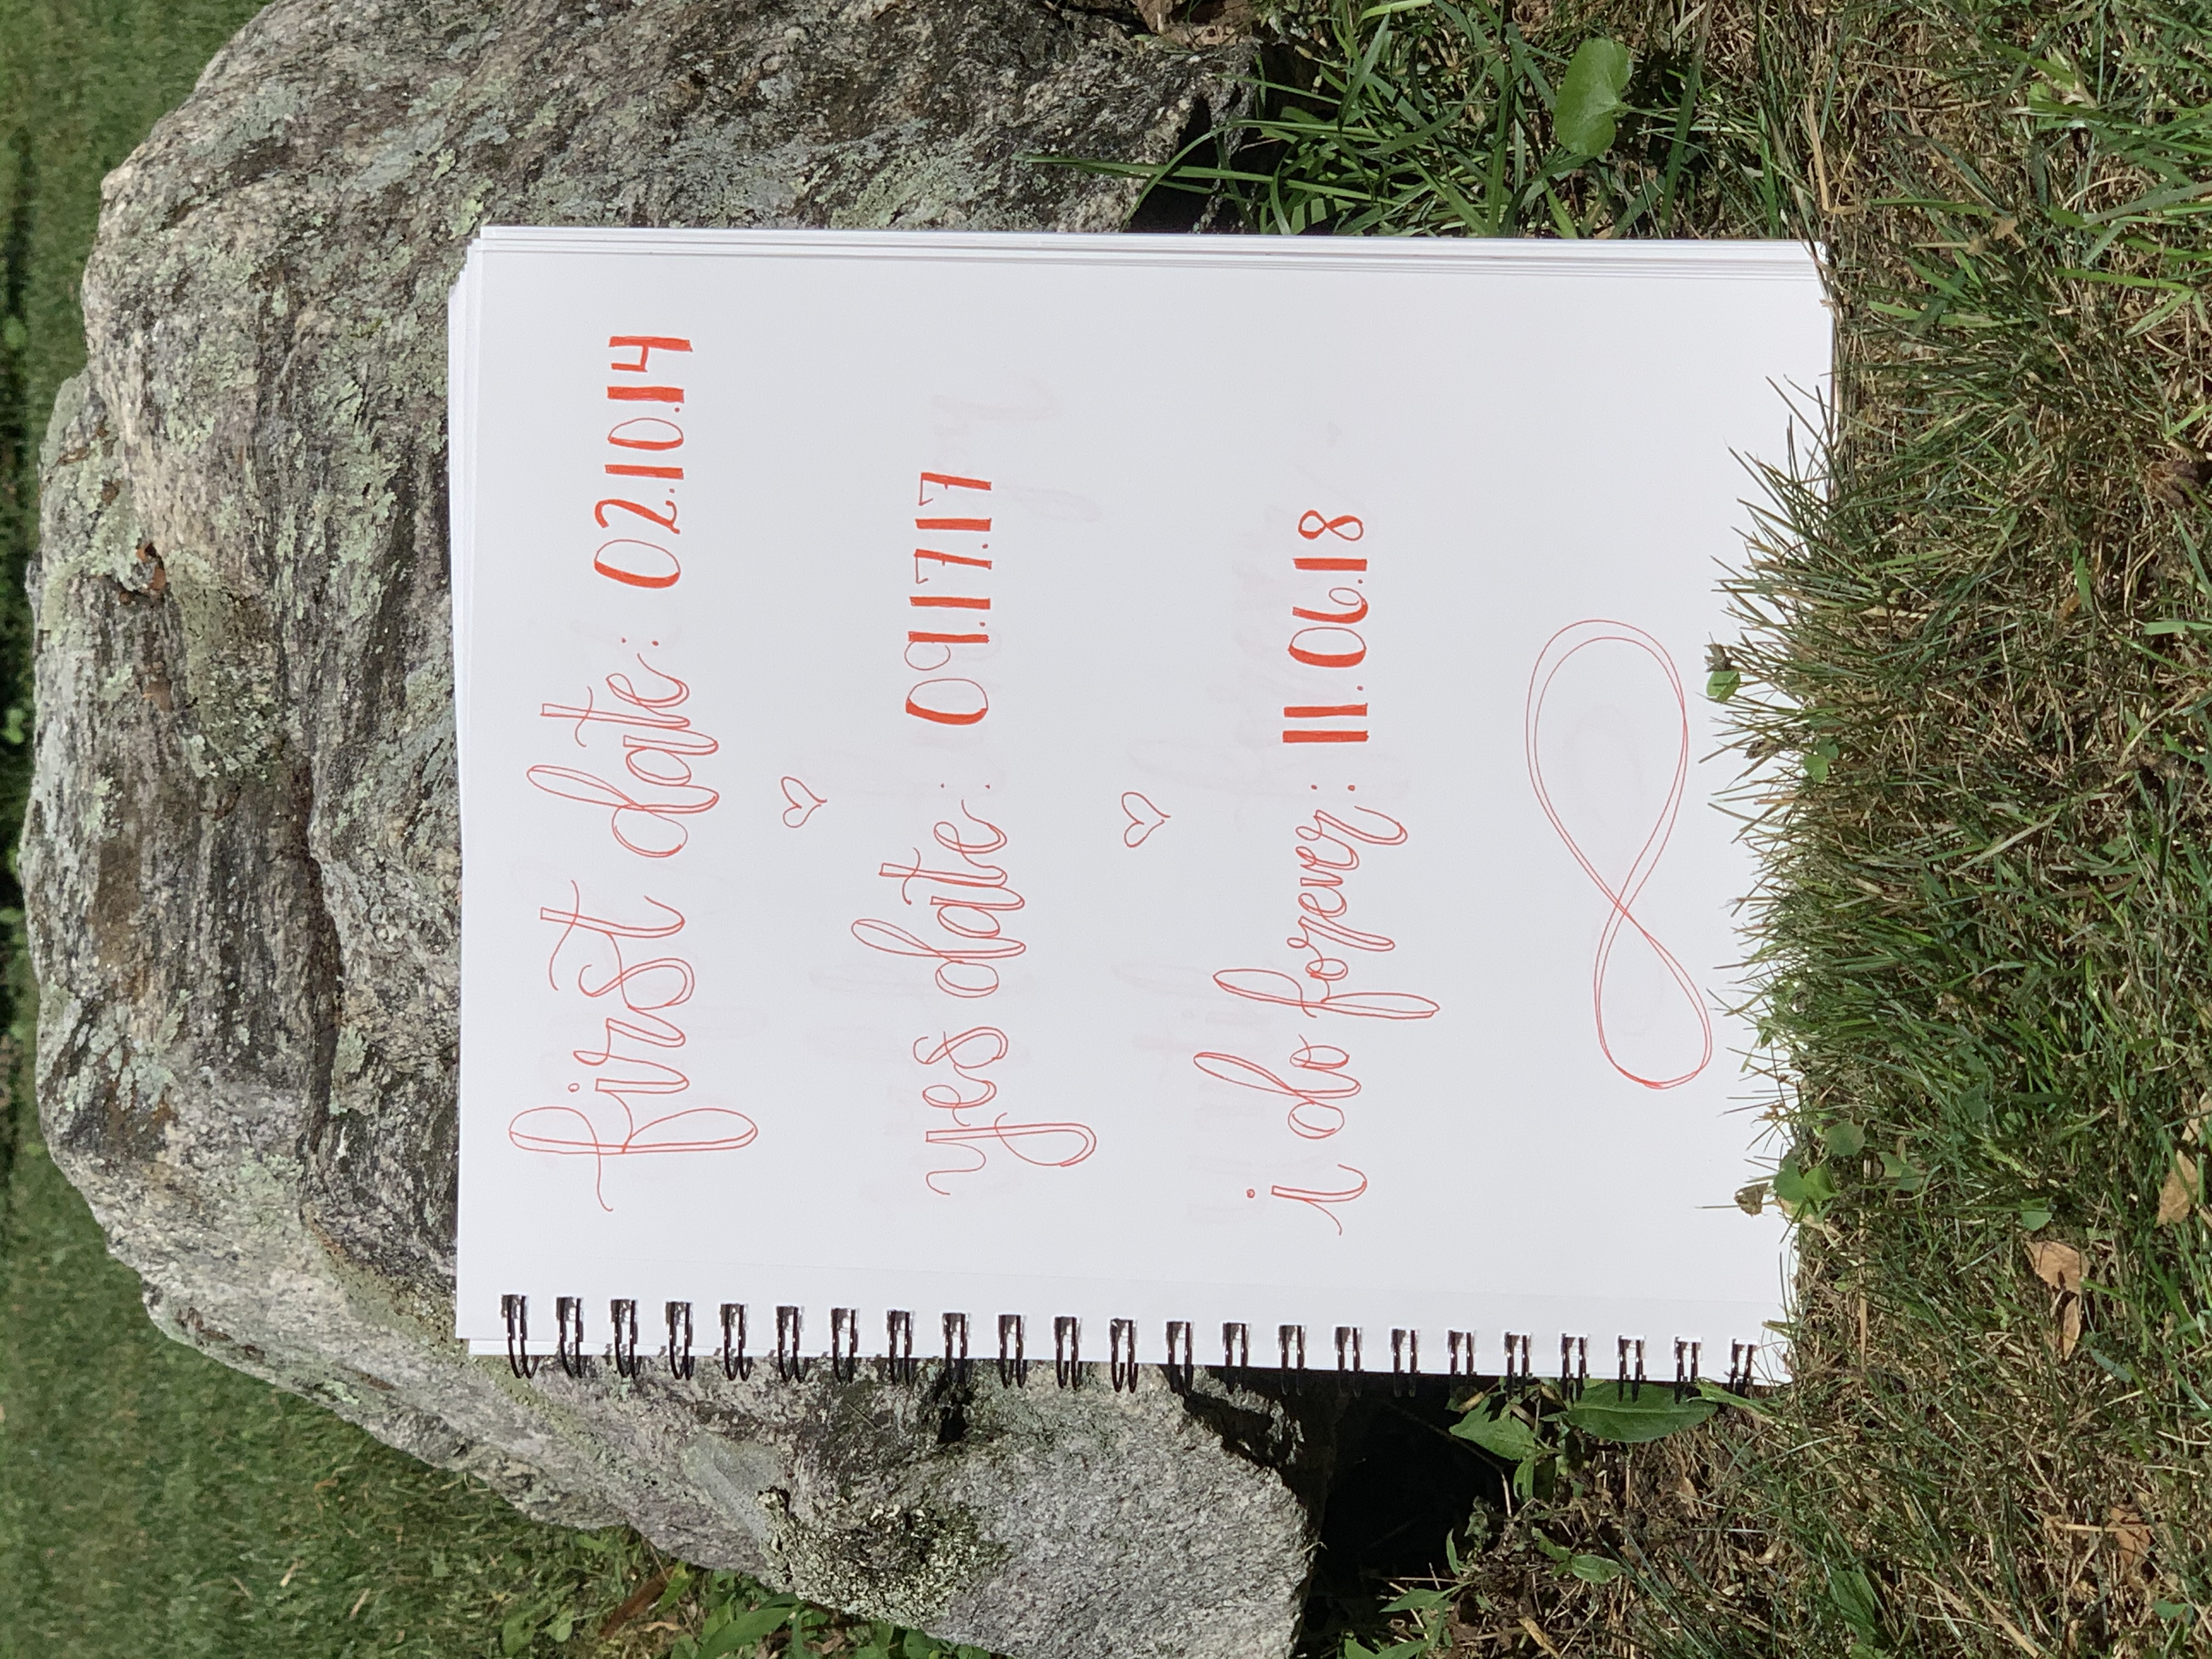 first date: 02.10.14
yes date: 09.17.17
i do forever: 11.06.18